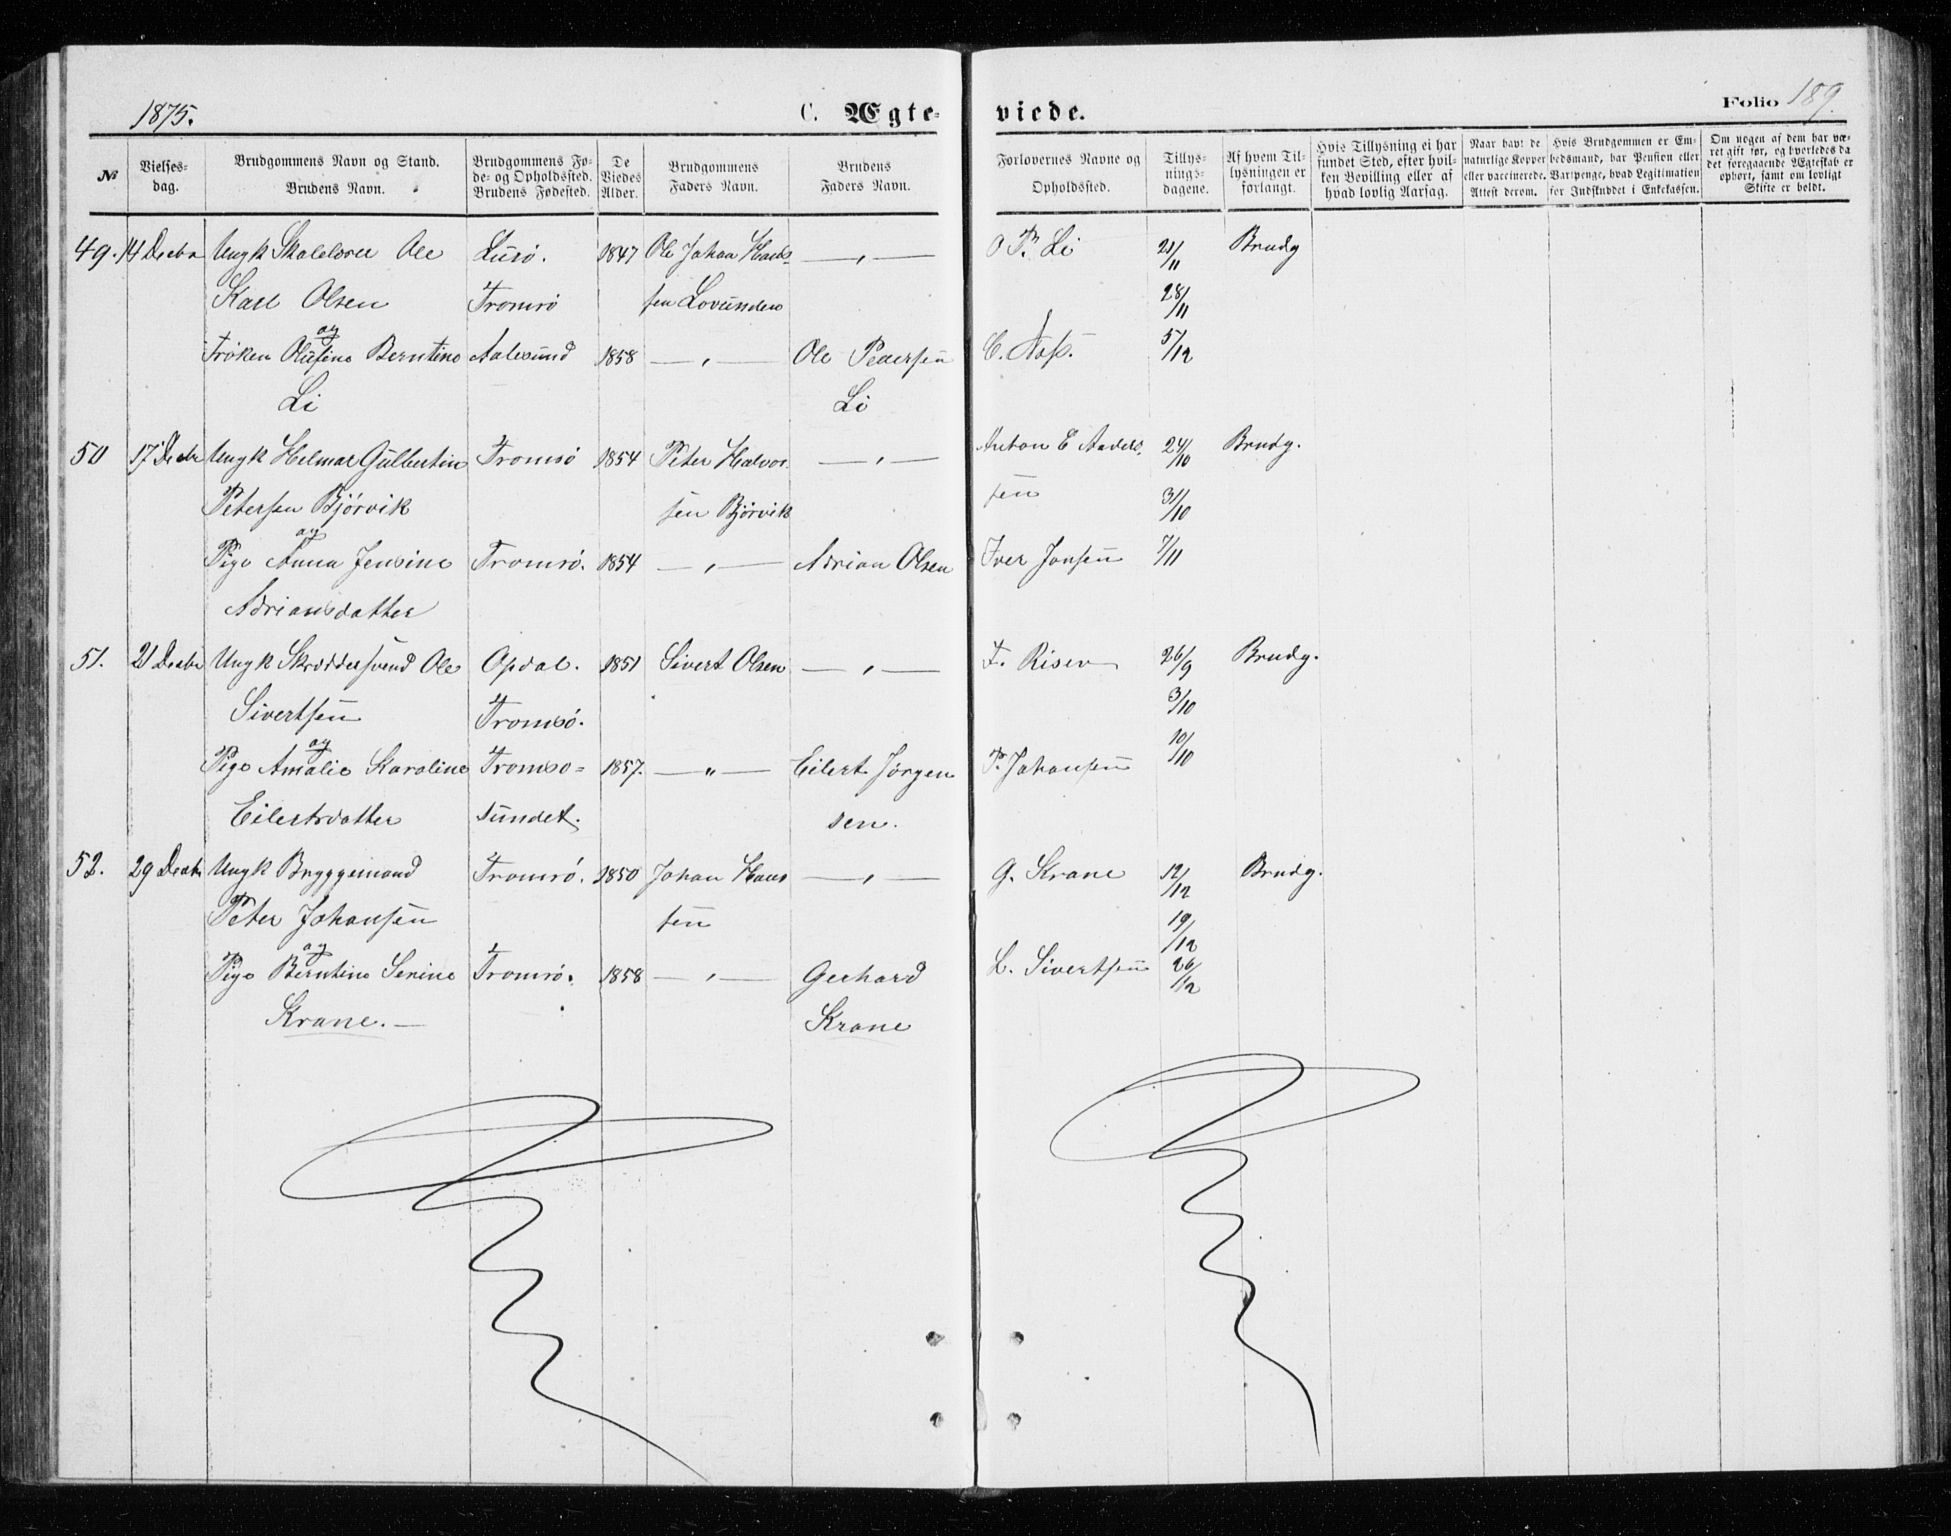 1875.
C. Ægte-
viede.
Folio 189.
№
Vielses-
dag.
Brudgommens Navn og Stand.
Brudens Navn.
Brudgommens Fø-
de- og Opholdssted.
Brudens Fødested.
De
Viedes
Alder.
Brudgommens
Faders Navn.
Brudens
Faders Navn.
Forlovernes Navne og
Opholdssted.
Tillys-
nings-
dagene.
Af hvem Til-
lysningen er
forlangt.
Hvis Tillysning ei har
fundet Sted, efter hvil-
ken Bevilling eller af
hvad lovlig Aarsag.
Naar havt de
naturlige Kopper
eller vaccinerede.
Attest derom.
Hvis Brudgommen er Em-
bedsmand, har Pension eller
Vartpenge, hvad Legitimation
for Indskuddet i Enkekassen.
Om nogen af dem har væ-
ret gift før, og hvorledes da
det foregaaende Ægteskab er
ophørt, samt om lovligt
Skifte er holdt.
49. 14 Decbr Ungk Skolelærer Ole Lurö. 1847 Ole Johan Hans- — „ — O. P. Li 21/11 Brudg
Karl Olsen Tromsö sen Lovunden 28/11
og
Frøken Olufine Berntine Aalesund 1858 — „ — Ole Pedersen C. Næss. 5/12
Li Li
50 17 Decbr Ungk Hilmar Gulbertin Tromsö 1854 Peter Halvor- — „ — Anton E 24/10 Brudg.
Petersen Bjørvik sen Bjørvik sen 31/10
og
Pige Anna Jensine Tromsö. 1854 — „ — Adrian Olsen Iver Jansen 7/11
Adriansdatter
51. 21 Decbr Ungk Skræddersvend Ole Opdal. 1851 Sivert Olsen — „ — F. Risen 26/9 Brudg.
Sivertsen Tromsö. 3/10
og 10/10
Pige Amalie Karoline Tromsö- 1857. — „ — Eilert Jørgen P. Johansen
Eilertsdatter sundet. sen.
52. 29 Decbr Ungk Bryggemand Tromsö. 1850 Johan Hans — „ — G. Krane 12/12 Brudg.
Peter Johansen sen 19/12
og
Pige Berntine Serine Tromsö. 1858 — „ — Gerhard L. Sivertsen 26/12
Krane. — Krane